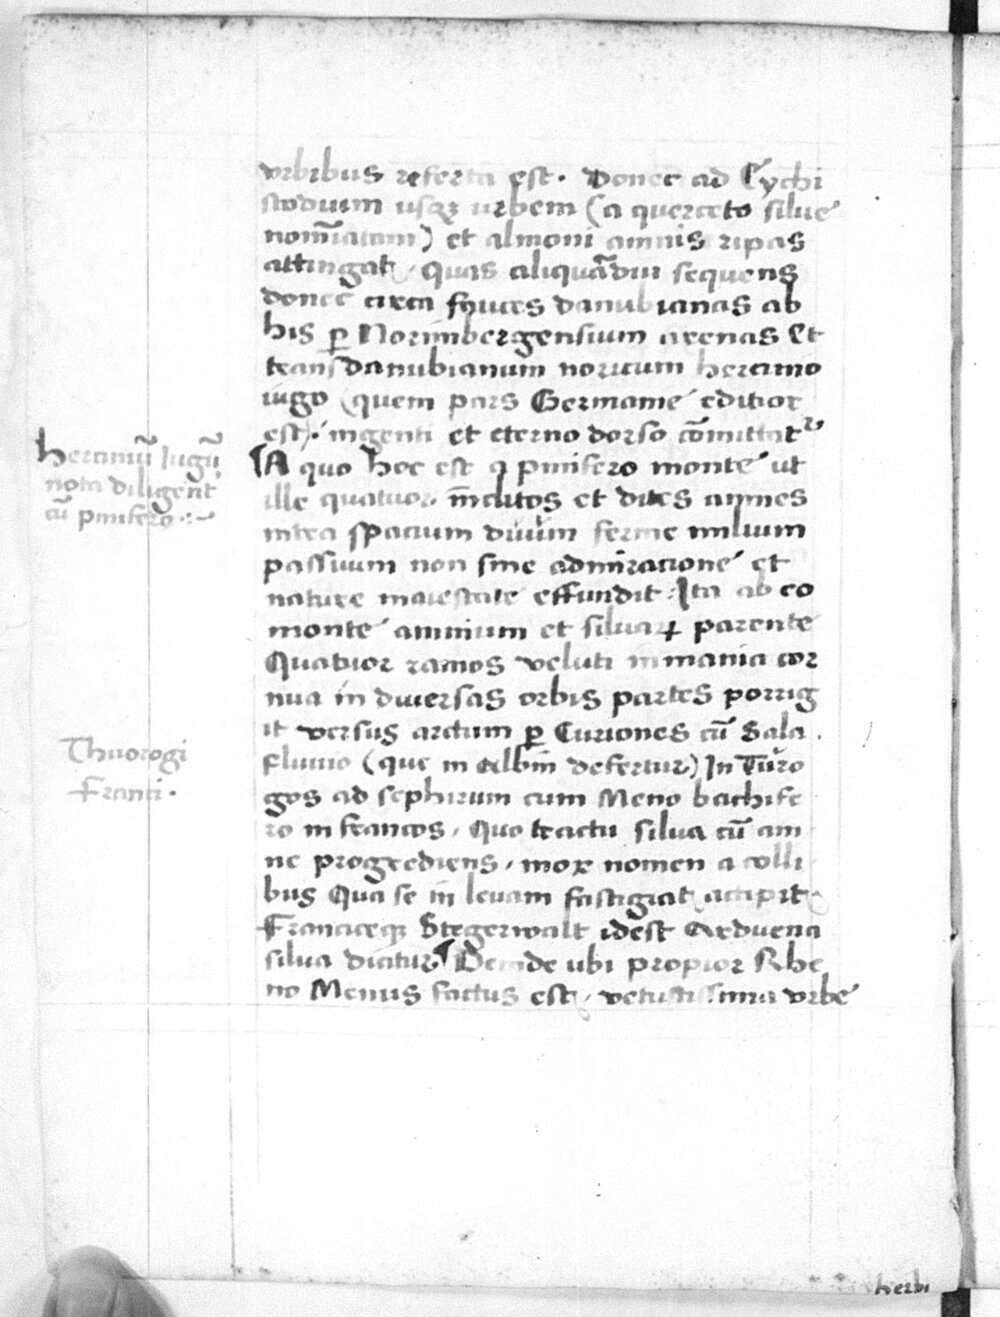 vrbibus referta est. Donec ad Cychi
stodium usqꝫ urbem (a querceto silue
nom̃iatam) et almoni amnis ripas
attingat, quas aliquãdiu sequens
donec circa fauces danubianas ab
his ꝑ Norimbergensium arenas Et
trans danubianum noricum hercinio
iugo (quem pars Germanie editior
est). ingenti et eterno dorso cõmittatʳ
¶A quo hoc est q pinifero monte ut
ille quatuor. inclitos et dites amnes
intra spacium duũm ferme milium
passuum non sine admiratione et
nature maiestate effundit. Ita ab eo
monte amnium et siluaꝝ parente
Quatuor ramos veluti inmania cor
nua in diuersas orbis partes porrig
it versus arctum ꝑ Curiones cũ Sala
fluuio (que in Albim defertur) In Turo
gos ad sephirum cum Meno bachife
ro in francos, Quo tractu silua cũ am
ne progrediens, mox nomen a colli
bus Qua se in leuam fastigiat accipit
Franciceqꝫ Stegerwalt idest Arduena
silua dicitur ¶ Deinde ubi propior Rhe
no Menus factus est, vetustissima vrbe
herciniũ Iugũ
nota diligent̃
cũ pinifero
Thuorogi
Franci.
herbi